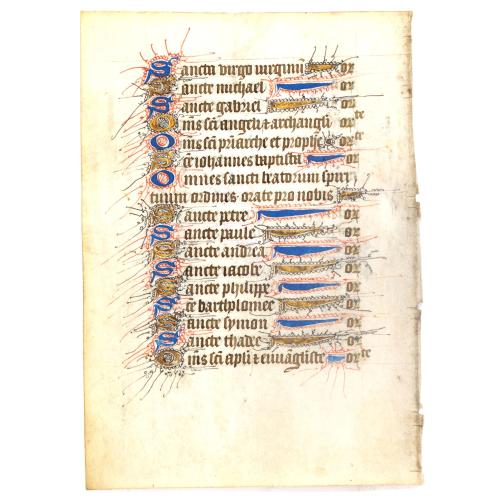 Sancta virgo virginū or
Sancte michael or
Sancte gabriel or
Omīs sc̄i angeli ⁊ archangeli orate
Omīs sc̄i p̄riarche et prophe orate
Sc̄e iohannes baptista or
Omnes sancti beatorum spiri
tuum ordines orate pro nobis
Sancte petre or
Sancte paule or
Sancte andrea or
Sancte iacobe or
Sancte philippe or
Sc̄e bartholomee or
Sancte symon or
Sancte thadee or
Omīs sc̄i apl̄i ⁊ euuāgliste orte